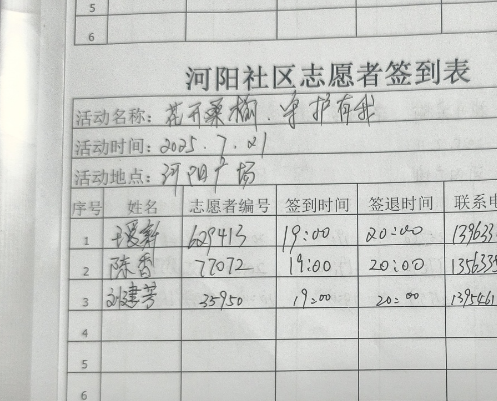 5
6
河阳社区志愿者签到表
活动名称：花开桑榆．守护有我
活动时间：2025.7.21
活动地点：河阳广场
序号 姓名 志愿者编号 签到时间 签退时间 联系电
1 629413 19:00 20:00 139633
2 陈香 77072 19:00 20:00 135633
3 刘建芳 35950 19:00 20:00 1395461
4
5
6